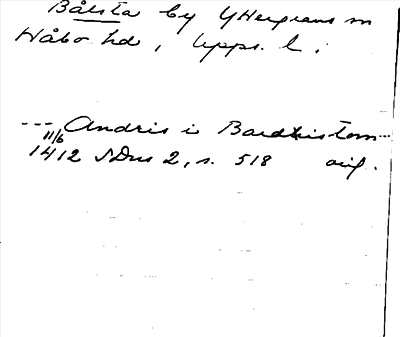 Bålsta by Yttergrans sn
Håbo hd, Upps. l.
--- Andris i Bardhistom ---
11/6
1412 SDns 2, s. 518 avif.